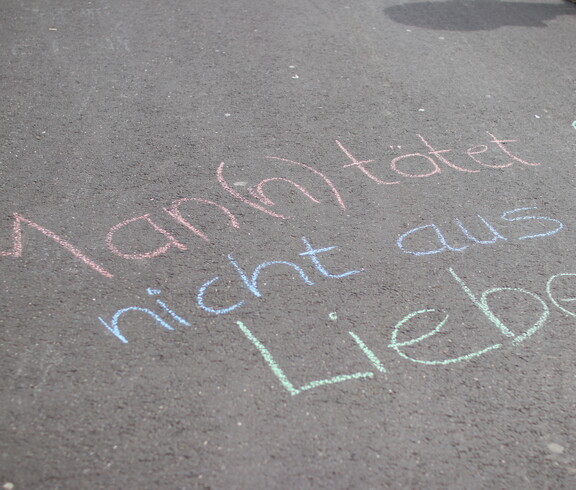 Man(n) tötet
nicht aus
Liebe